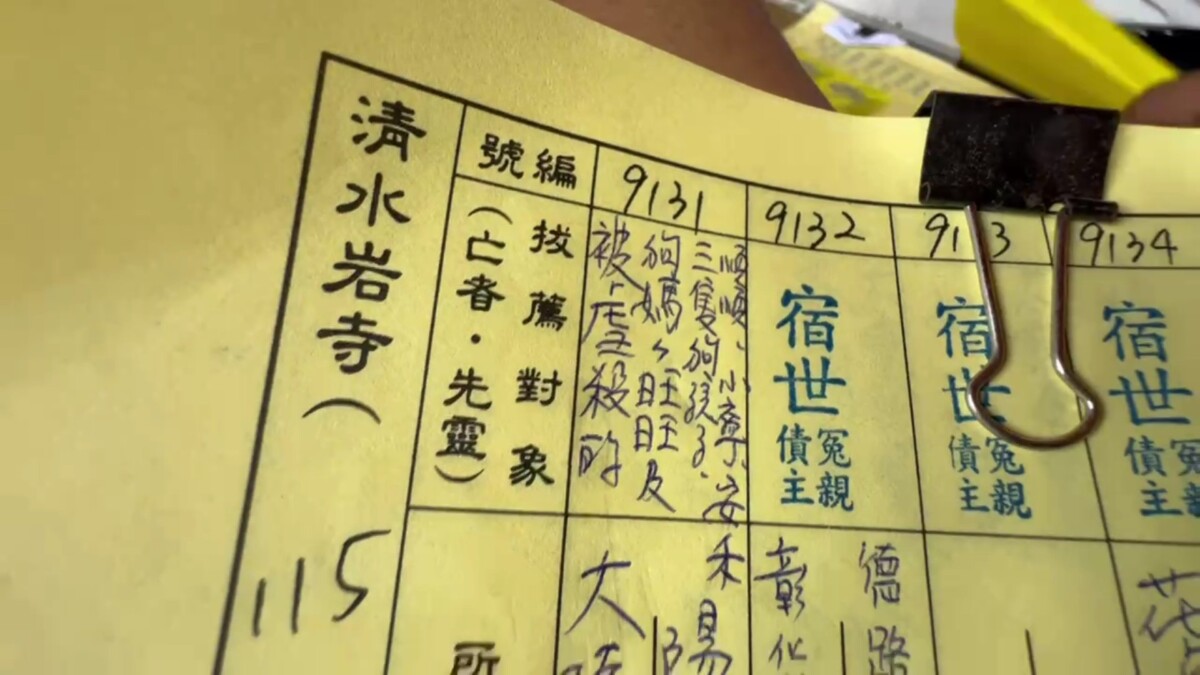 清水岩寺（
115
編號
拔薦對象
（亡者・先靈）
9131
被虐殺的
狗媽々旺旺及
三隻狗孩子.
順順、小章、安
禾
大
9132
宿世
冤親
債主
德路
彰化
宿世
冤親
債主
9134
宿世
債主
所